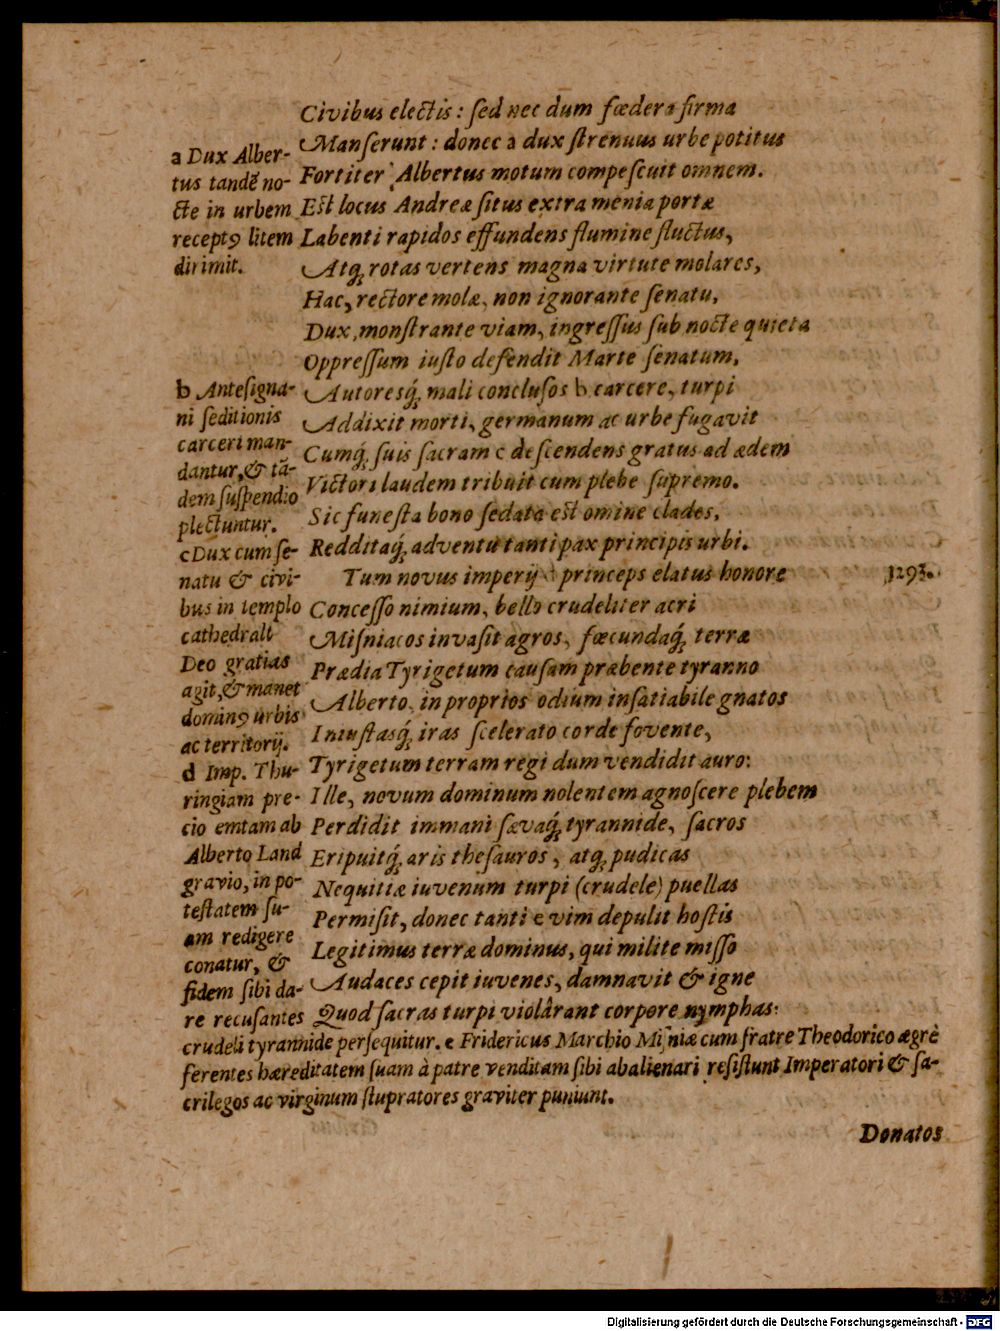 Civibus electis: ſed nec dum fœdera firma
Manſerunt: donec a dux ſtrenuus urbe potitus
Fortiter Albertus motum compeſcuit omnem.
Eſt locus Andreæ ſitus extra menia portæ
Labenti rapidos effundens flumine fluctus,
Atq́; rotas vertens magna virtute molares,
Hac, rectore molæ, non ignorante ſenatu,
Dux, monſtrante viam, ingreſſus ſub nocte quieta
Oppreſſum iuſto defendit Marte ſenatum,
Autoresq́; mali concluſos b carcere, turpi
Addixit morti, germanum ac urbe fugavit
Cumq́; ſuis ſacram c deſcendens gratus ad ædem
Victori laudem tribuit cum plebe ſupremo.
Sic funeſta bono ſedata eſt omine clades,
Redditaq́; adventu tanti pax principis urbi.
Tum novus imperij d princeps elatus honore
1293.
Conceſſo nimium, bello crudeliter acri
Miſniacos invaſit agros, fœcundaq́; terræ
Prædia Tyrigetum cauſam præbente tyranno
Alberto, in proprios odium inſatiabile gnatos
Iniuſtasq́; iras ſcelerato corde fovente,
Tyrigetum terram regi dum vendidit auro:
Ille, novum dominum nolentem agnoſcere plebem
Perdidit immani ſævaq́; tyrannide, ſacros
Eripuitq́; aris theſauros, atq́; pudicas
Nequitiæ iuvenum turpi (crudele) puellas
Permiſit, donec tanti e vim depulit hoſtis
Legitimus terræ dominus, qui milite miſſo
Audaces cepit iuvenes, damnavit & igne
Quod ſacras turpi violârant corpore nymphas:
a Dux Alber-
tus tandẽ no-
cte in urbem
receptꝰ litem
dirimit.
b Anteſigna-
ni ſeditionis
carceri man-
dantur, & tã-
dem ſuſpendio
plectuntur.
c Dux cum ſe-
natu & civi-
bus in templo
cathedrali
Deo gratias
agit, & manet
dominꝰ urbis
ac territorij.
d Imp. Thu-
ringiam pre-
cio emtam ab
Alberto Land
gravio, in po-
teſtatem ſu-
am redigere
conatur, &
fidem ſibi da-
re recuſantes
crudeli tyrannide perſequitur. e Fridericus Marchio Miſniæ cum fratre Theodorico ægrè
ferentes hæreditatem ſuam à patre venditam ſibi abalienari reſiſtunt Imperatori & ſa-
crilegos ac virginum ſtupratores graviter puniunt.
Donatos
Digitalisierung gefördert durch die Deutsche Forschungsgemeinschaft - DFG